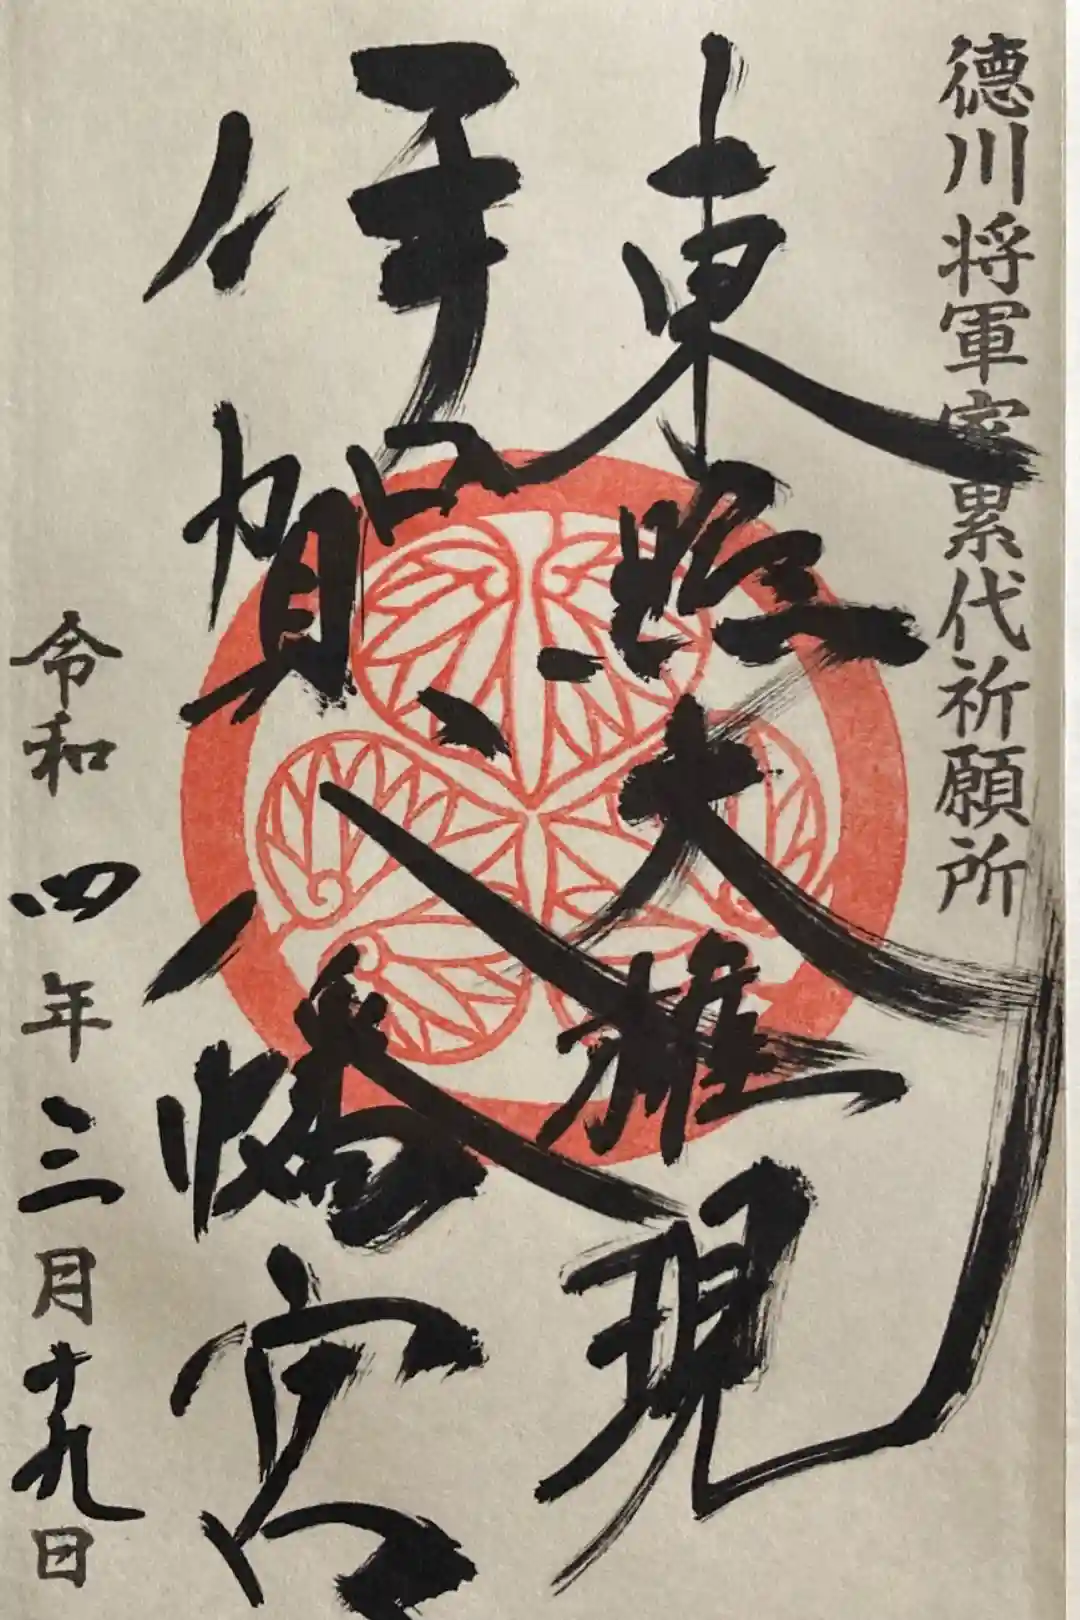 徳川将軍家累代祈願所
東照大権現
伊賀八幡宮
令和四年三月十九日